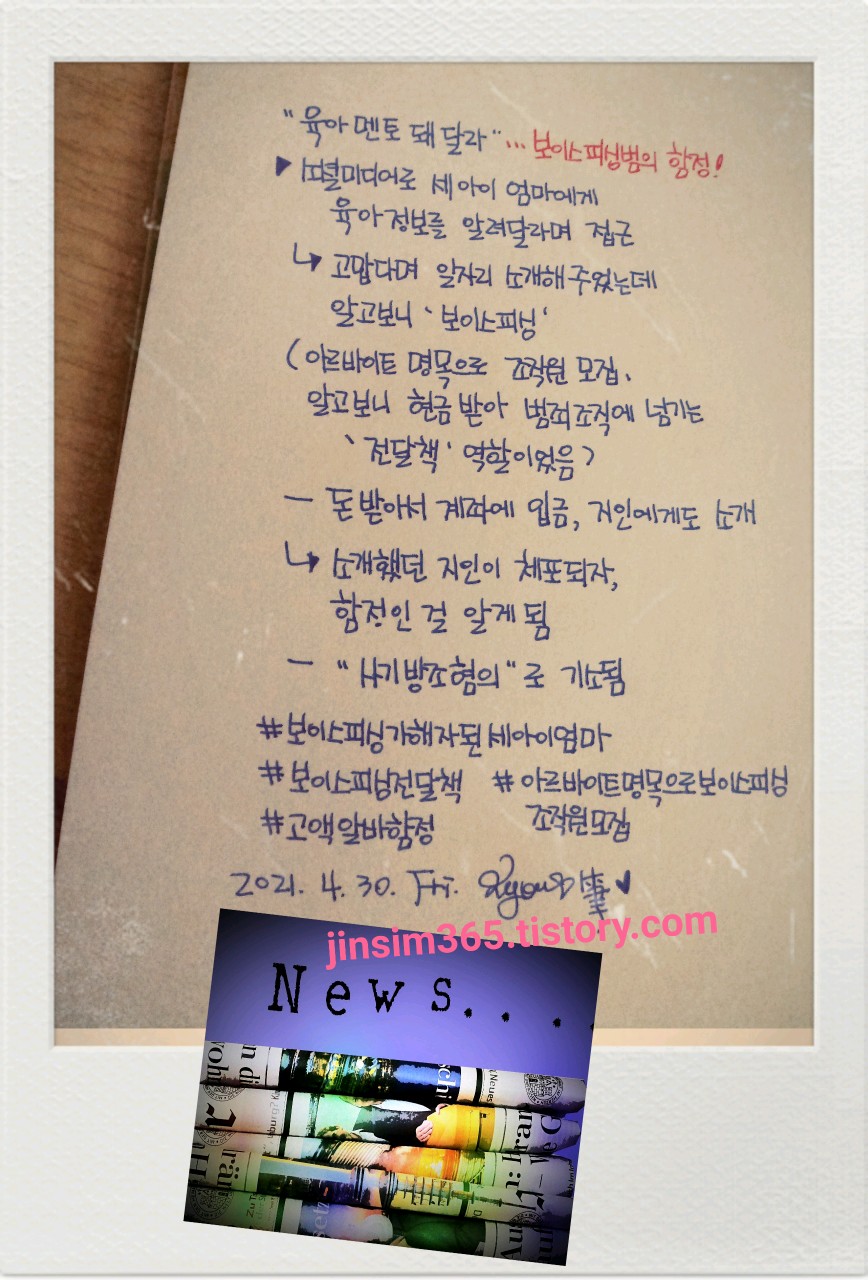 "육아 멘토 돼 달라"... 보이스피싱범의 함정!
▶ 소셜미디어로 세 아이 엄마에게
육아정보를 알려달라며 접근
↳ 고맙다며 일자리 소개해 주었는데
알고보니 '보이스피싱'
(아르바이트 명목으로 조직원 모집.
알고보니 현금 받아 범죄조직에 넘기는
'전달책' 역할이었음)
— 돈 받아서 계좌에 입금, 지인에게도 소개
↳ 소개했던 지인이 체포되자,
함정인 걸 알게 됨
— "사기방조혐의"로 기소됨
#보이스피싱가해자된세아이엄마
#보이스피싱전달책 #아르바이트명목으로보이스피싱
조직원모집
#고액알바함정
2021. 4. 30. Fri.
jinsim365.tistory.com
News....